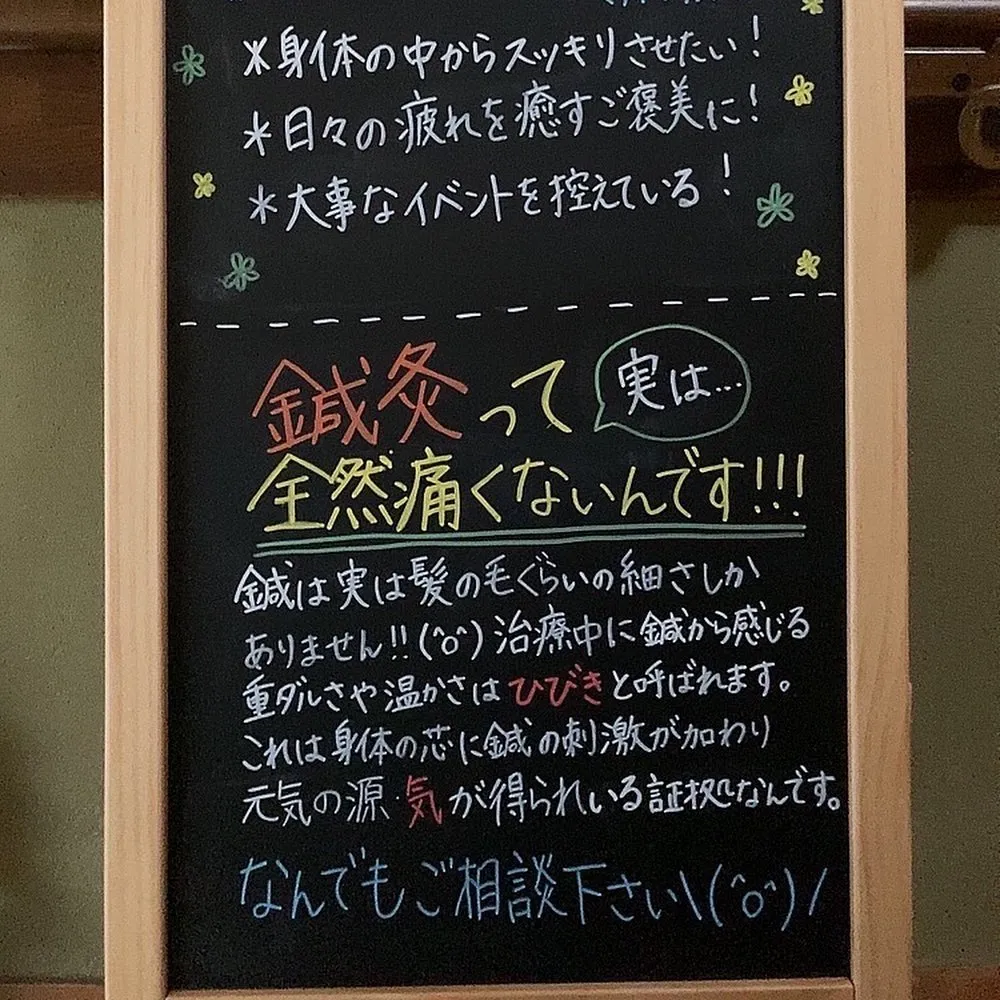 *身体の中からスッキリさせたい!
*日々の疲れを癒すご褒美に!
*大事なイベントを控えている!
鍼灸って 実は…
全然痛くないんです!!!
鍼は実は髪の毛ぐらいの細さしか
ありません!!(^o^)治療中に鍼から感じる
重ダルさや温かさはひびきと呼ばれます。
これは身体の芯に鍼の刺激が加わり
元気の源・気が得られいる証拠なんです。
なんでもご相談下さい\(^o^)/